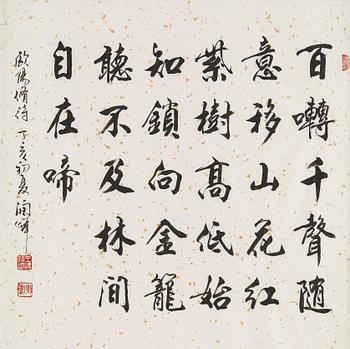 百囀千聲随
意移山花紅
紫樹髙低始
知鎖向金籠
聽不及林間
自在啼
歐陽脩诗 丁亥初夏